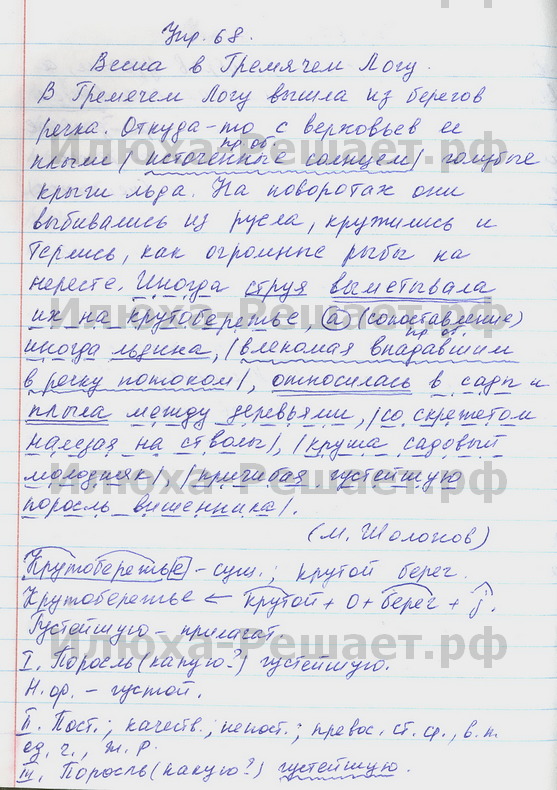 Упр. 68.
Весна в Гремячем Логу.
В Гремячем Логу вышла из берегов
речка. Откуда-то с верховьев ее
пр. об.
плыли / источенные солнцем / голубые
крыги льда. На поворотах они
выбивались из русла, кружились и
терлись, как огромные рыбы на
нересте. Иногда струя выметывала
их на крутобережье, (а) (сопоставление)
пр. об.
иногда льдина, / влекомая впадавшим
в речку потоком /, относилась в сады и
плыла между деревьями, / со скрежетом
налезая на стволы /, / круша садовый
молодняк /, / пригибая густейшую
поросль вишенника /.
(М. Шолохов)
Крутобережье - сущ.; крутой берег.
Крутобережье ← крутой + о + берег + j.
Густейшую - прилагат.
I. Поросль (какую?) густейшую.
Н. ф. - густой.
II. Пост.; качеств.; непост.; превос. ст. ср., в. п.
ед. ч., ж. р.
III. Поросль (какую?) густейшую.
Илюха-Решает.рф
Илюха-Решает.рф
Илюха-Решает.рф
Илюха-Решает.рф
Илюха-Решает.рф